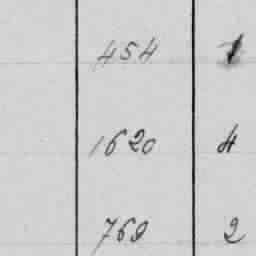 454 1
1620 4
769 2